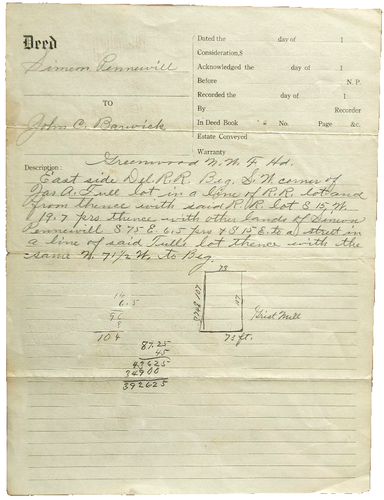 Deed
Simeon Pennewill
TO
John C. Barwick
Dated the day of 1
Consideration, $
Acknowledged the day of 1
Before N. P.
Recorded the day of 1
By Recorder
In Deed Book No. Page &c.
Estate Conveyed
Warranty
Greenwood N. W. F. Hd.
Description:
East side Del R.R. Beg. S. W corner of
Jas. A. Tull lot in a line of R.R. lot and
from thence with said R.R lot S 15, W.
19.7 prs thence with other lands of Simeon
Pennewill S 75 E. 6.5 prs & S 15 E. to a street in
a line of said Tulls lot thence with the
same N. 71 1/2 W. to Beg.
73
107
Grist Mill
73 ft.
6.5
96
8
104
87.25
45
43625
34900
392625